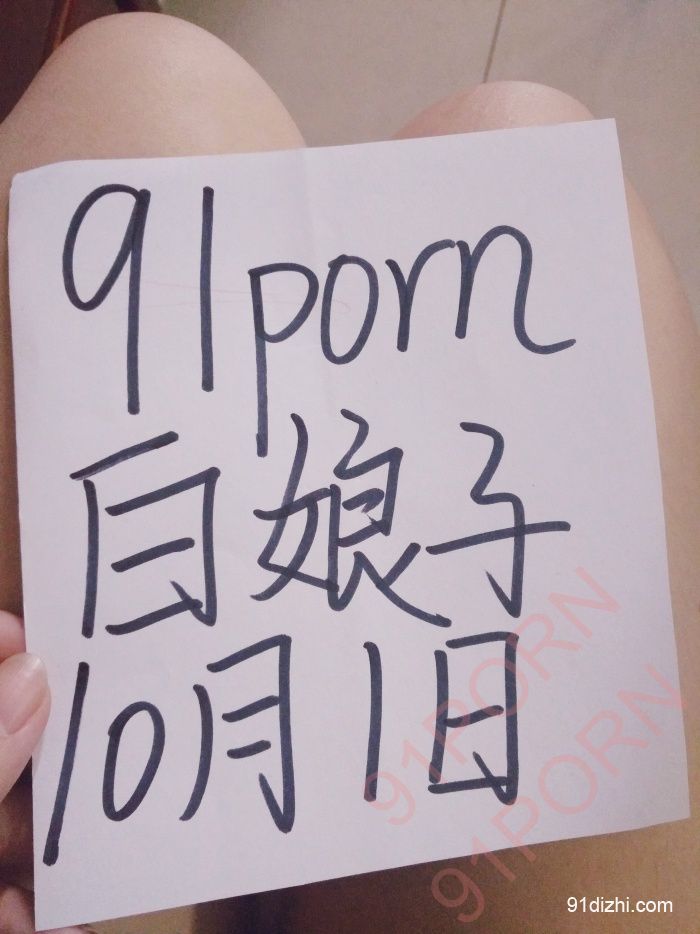 91porn
白娘子
10月1日
91PORN
91PORN
91dizhi.com